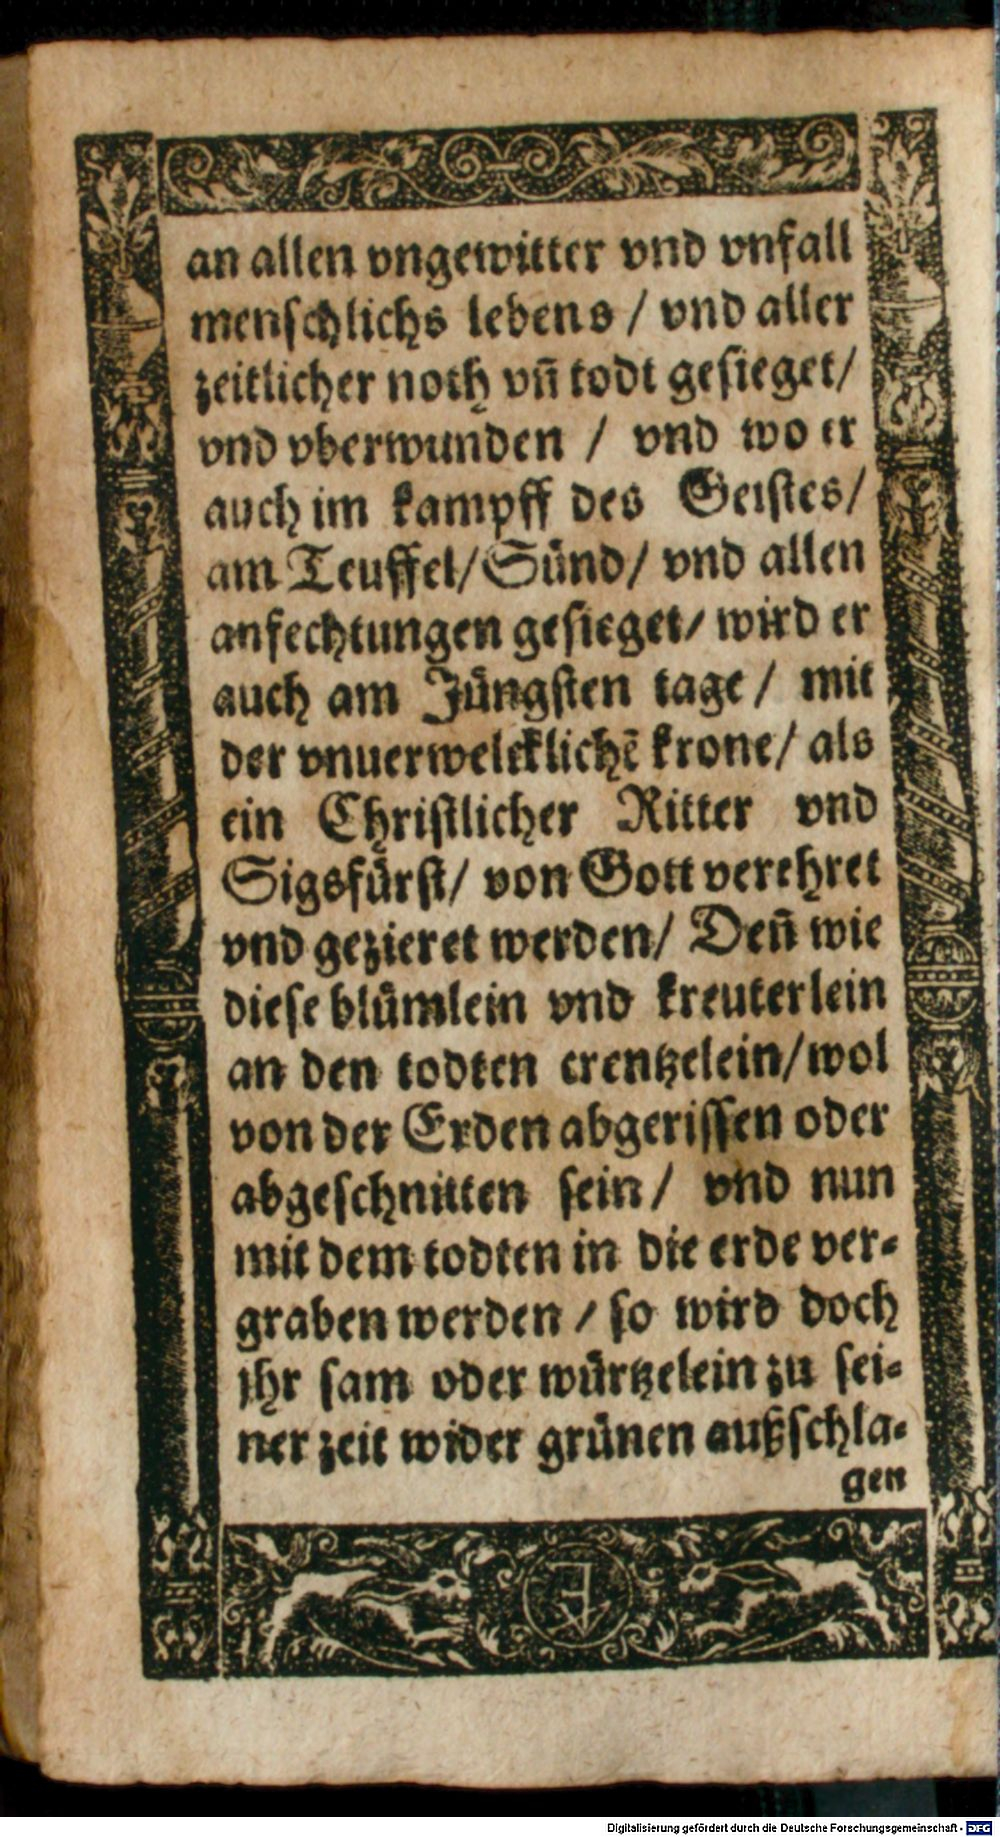 an allen vngewitter vnd vnfall
menschlichs lebens / vnd aller
zeitlicher noth vñ todt gesieget/
vnd vberwunden / vnd wo er
auch im kampff des Geistes/
am Teuffel/ Sünd/ vnd allen
anfechtungen gesieget/ wird er
auch am Jüngsten tage / mit
der vnuerwelcklichẽ krone/ als
ein Christlicher Ritter vnd
Sigsfürst/ von Gott verehret
vnd gezieret werden/ Deñ wie
diese blümlein vnd kreuterlein
an den todten crentzelein/wol
von der Erden abgerissen oder
abgeschnitten sein / vnd nun
mit dem todten in die erde ver-
graben werden / so wird doch
jhr sam oder würtzelein zu sei-
ner zeit wider grünen außschla-
gen
Digitalisierung gefördert durch die Deutsche Forschungsgemeinschaft - DFG